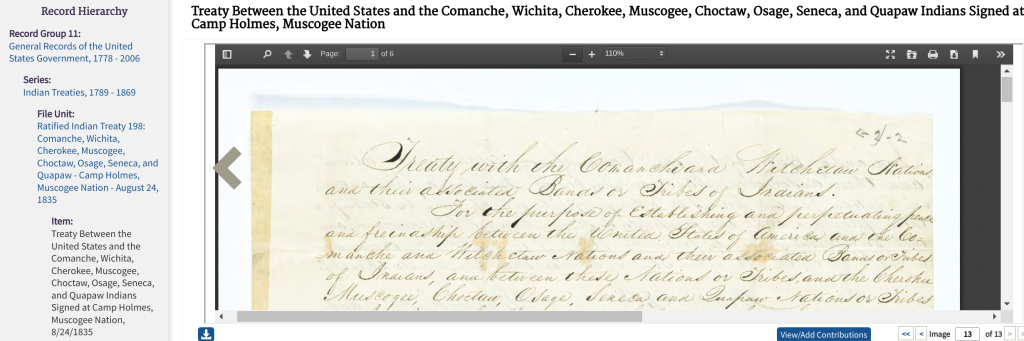 Record Hierarchy
Record Group 11:
General Records of the United
States Government, 1778 - 2006
Series:
Indian Treaties, 1789 - 1869
File Unit:
Ratified Indian Treaty 198:
Comanche, Wichita,
Cherokee, Muscogee,
Choctaw, Osage, Seneca, and
Quapaw - Camp Holmes,
Muscogee Nation - August 24,
1835
Item:
Treaty Between the
United States and the
Comanche, Wichita,
Cherokee, Muscogee,
Choctaw, Osage, Seneca,
and Quapaw Indians
Signed at Camp Holmes,
Muscogee Nation,
8/24/1835
Treaty Between the United States and the Comanche, Wichita, Cherokee, Muscogee, Choctaw, Osage, Seneca, and Quapaw Indians Signed at
Camp Holmes, Muscogee Nation
Page: 1 of 6 110%
Treaty with the Comanche and Witchetaw Nations
and their associated Bands or Tribes of Indians.
For the purpose of establishing and perpetuating peace
and freindship between the United States of America and the Co-
manche and Witchetaw Nations and their associated Bands or Tribes
of Indians, and between these Nations or Tribes, and the Cherokee
Muscogee, Choctaw, Osage, Seneca and Quapaw Nations or Tribes
View/Add Contributions
<< < Image 13 of 13 > >